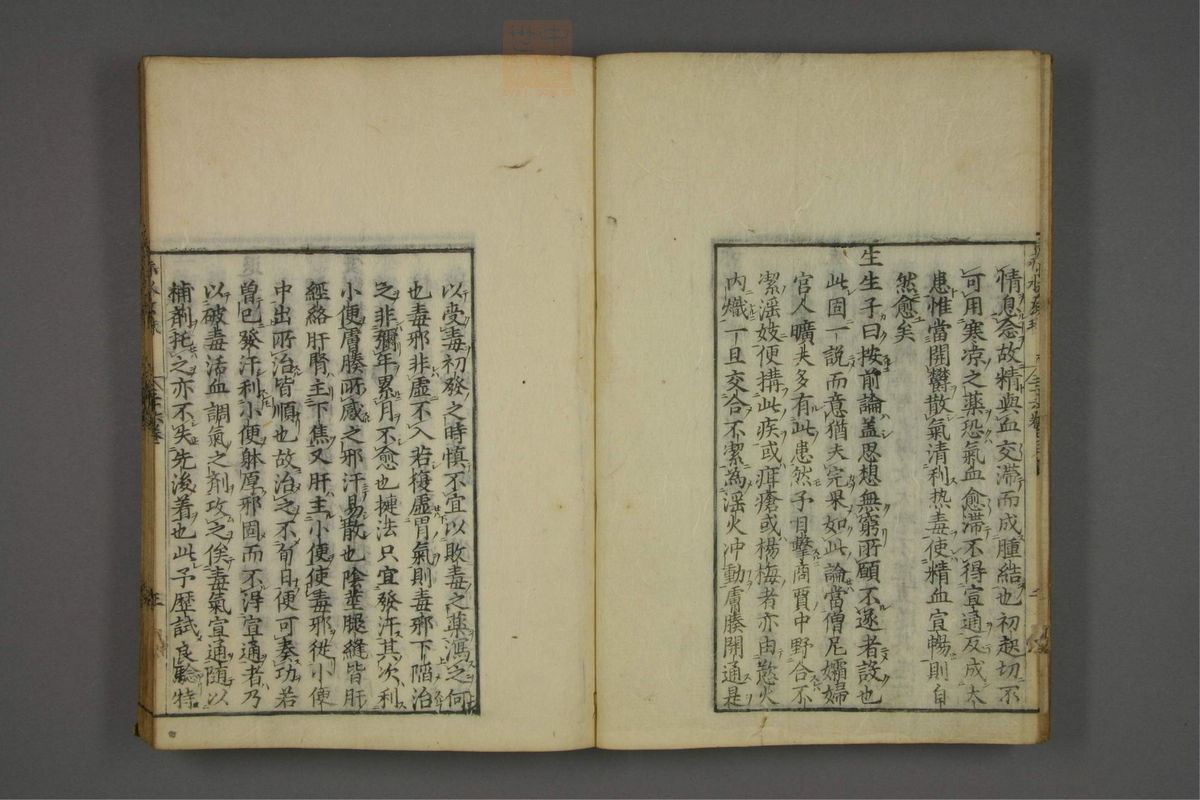 情息愈故精與血交滯而成腫結也初起切不
可用寒凉之藥恐氣血愈滯不得宣通反成大
患惟當開鬱散氣清利热毒使精血宣暢則自
然愈矣
生生子曰按前論盖思想無窮所願不遂者設也
此固一說而意猶夫完果如此論當僧尼孀婦
官人曠夫多有此患然予目擊商賈中野合不
潔淫妓便搆此疾或疳瘡或楊梅者亦由慾火
内熾一旦交合不潔為淫火冲動膚腠開通是
以受毒初發之時慎不宜以敗毒之藥瀉之何
也毒邪非虛不入若複虛胃氣則毒邪下陷治
之非彌年累月不愈也揵法只宜發汗其次利
小便膚腠所感之邪汗易散也陰莖腿縫皆肝
經絡肝腎主下焦又肝主小便使毒邪從小便
中出所治皆順也故治之不旬日便可奏功若
曽已發汗利小便躰厚邪固而不得宣通者乃
以破毒活血調氣之劑攻之俟毒氣宣通随以
補劑托之亦不失先後着也此予歷試良驗特